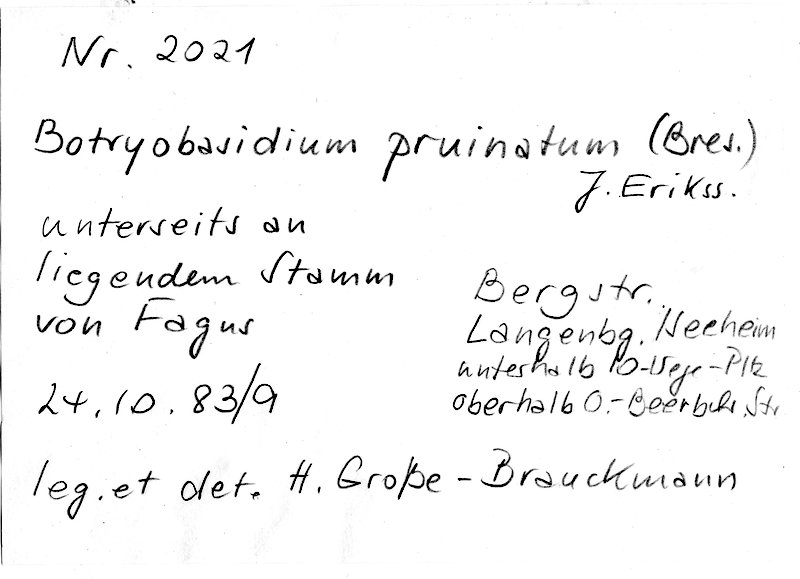 Nr. 2021
Botryobasidium pruinatum (Bres.)
J. Erikss.
unterseits an
liegendem Stamm
von Fagus
24.10.83/9
Bergstr.
Langenbg. Seeheim
unterhalb 10-Wege-Pltz
oberhalb O.-Beerbchr. Str.
leg. et det. H. Große-Brauckmann